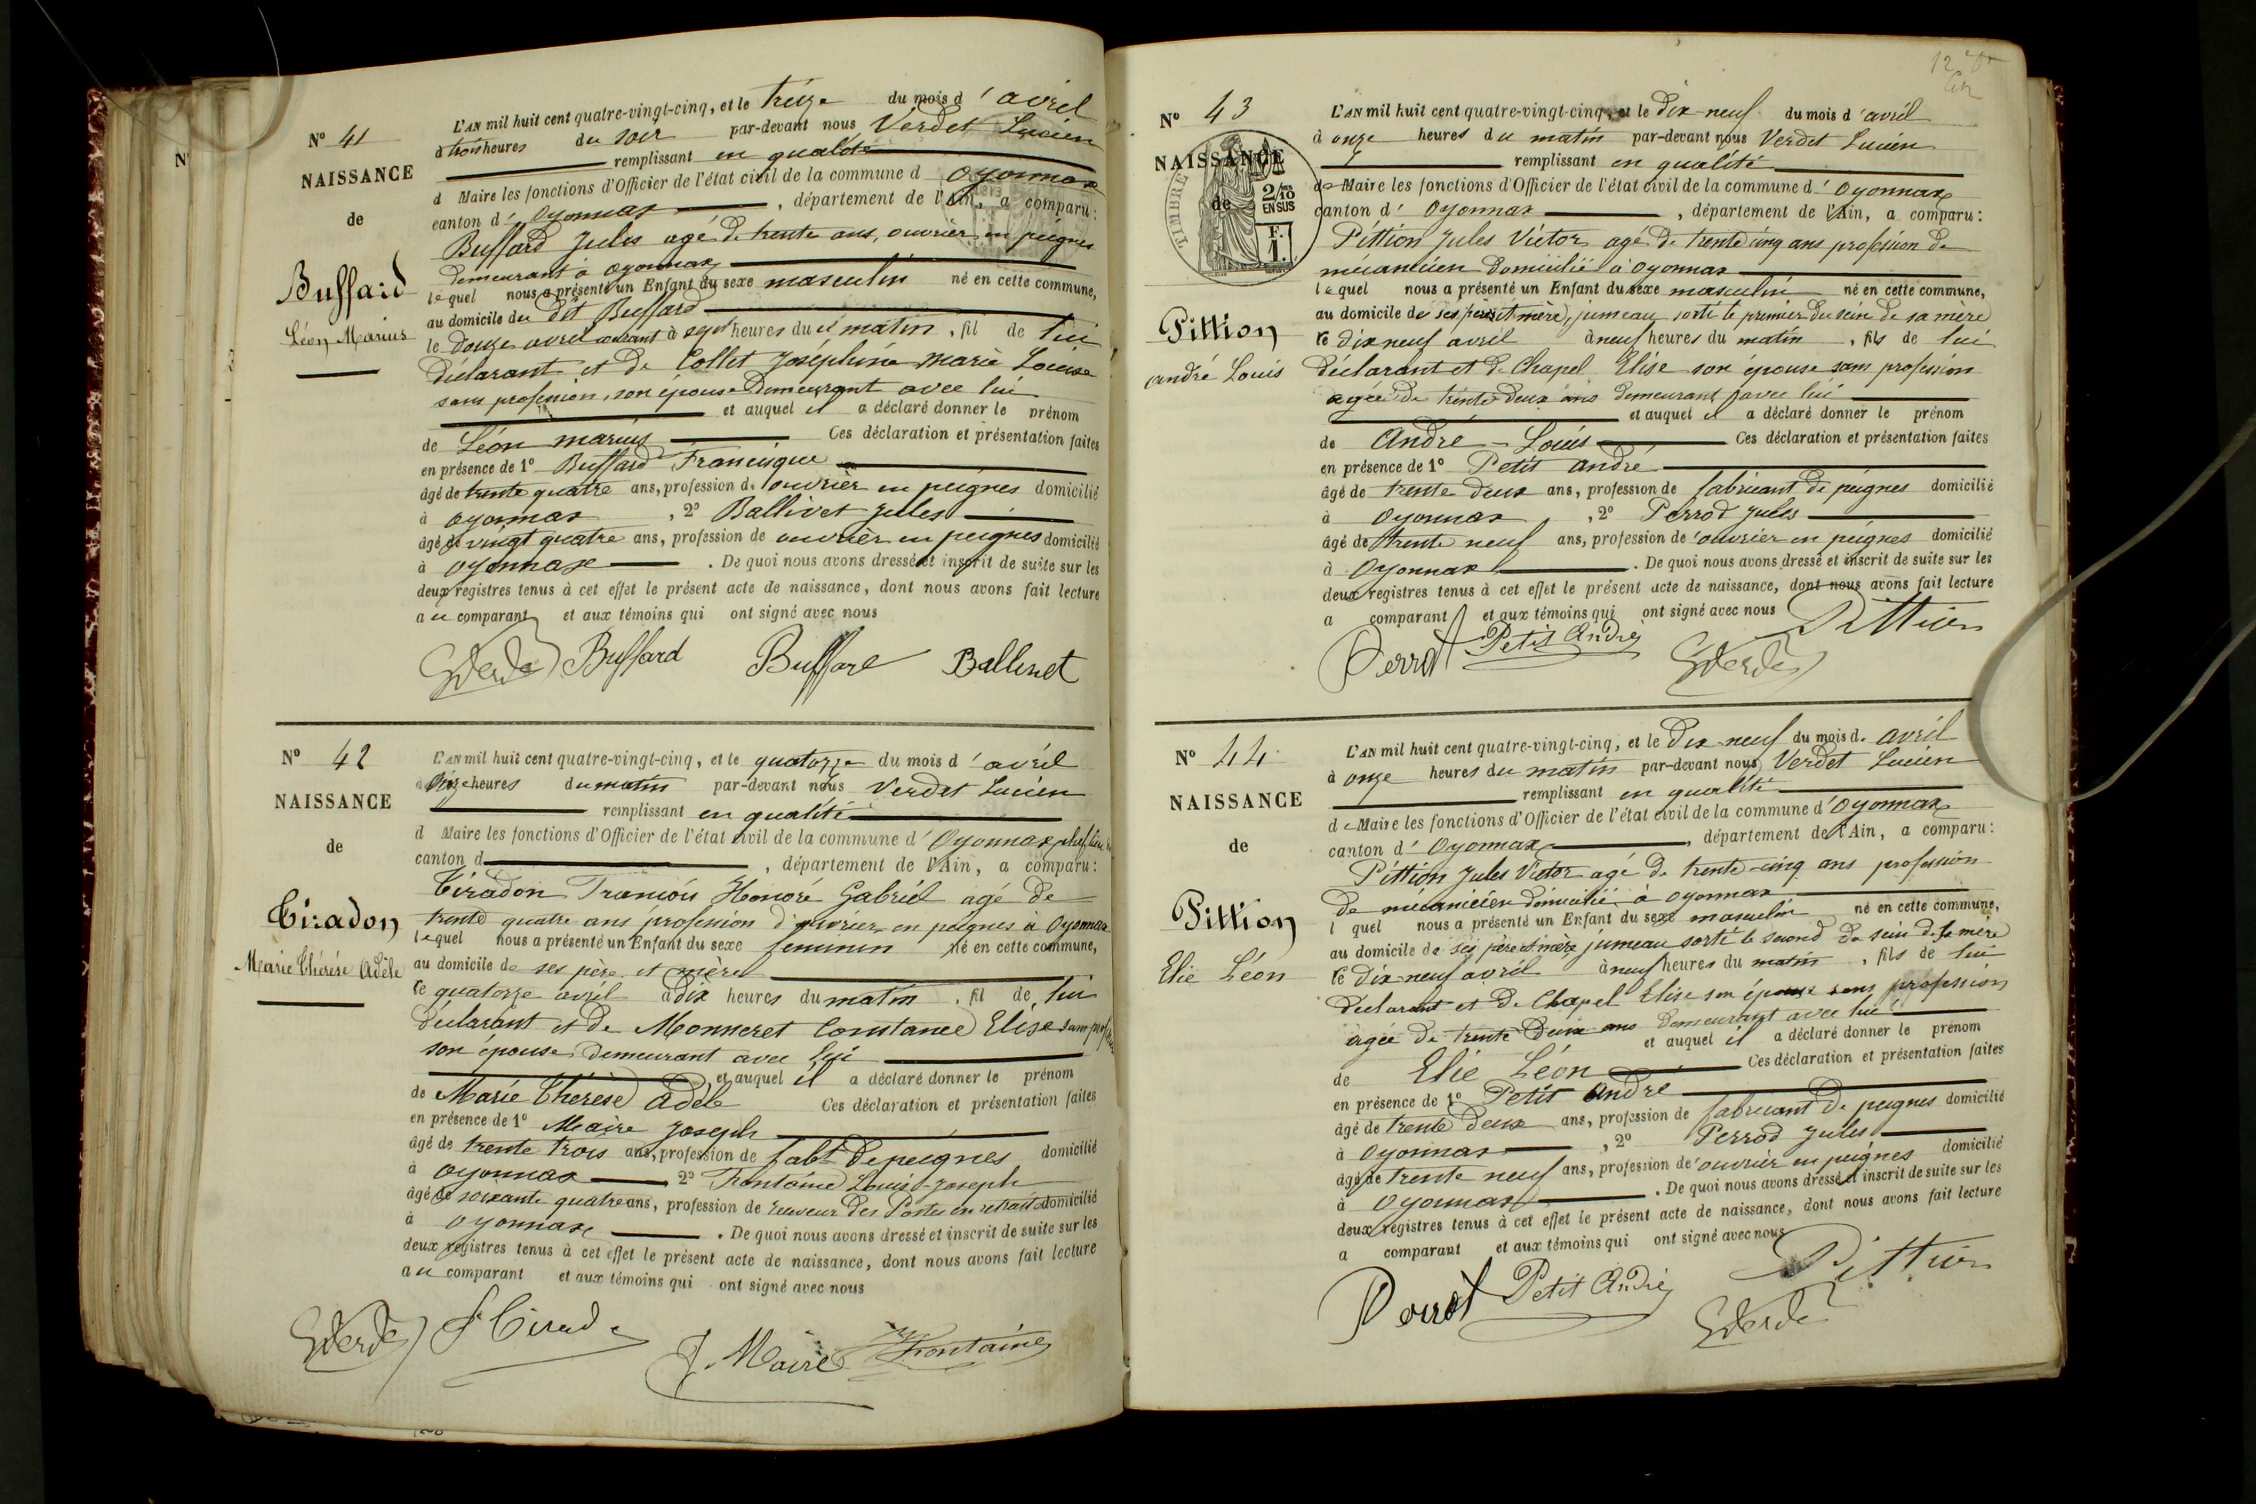 N° 41
NAISSANCE
de
Buffard
Léon Marius
L'AN mil huit cent quatre-vingt-cinq, et le treize du mois d'avril
à trois heures du soir par-devant nous Verdet Lucien
remplissant en qualité
d Maire les fonctions d'Officier de l'état civil de la commune d Oyonnax
canton d'Oyonnax, département de l'Ain, a comparu:
Buffard Jules agé de trente ans, ouvrier en peignes
demeurant à Oyonnax
lequel nous a présenté un Enfant du sexe masculin né en cette commune,
au domicile du dit Buffard
le douze avril courant à sept heures du matin, fil de lui
déclarant et de Collet Joséphine Marie Louise
sans profession, son épouse demeurant avec lui
et auquel il a déclaré donner le prénom
de Léon Marius Ces déclaration et présentation faites
en présence de 1° Buffard Francisque
âgé de trente quatre ans, profession d'ouvrier en peignes domicilié
à Oyonnax, 2° Ballivet Jules
âgé de vingt quatre ans, profession de ouvrier en peignes domicilié
à Oyonnax. De quoi nous avons dressé et inscrit de suite sur les
deux registres tenus à cet effet le présent acte de naissance, dont nous avons fait lecture
au comparant et aux témoins qui ont signé avec nous
Verdet Buffard Buffard Ballivet
N° 42
NAISSANCE
de
Tiradon
Marie Thérèse Adèle
L'AN mil huit cent quatre-vingt-cinq, et le quatorze du mois d'avril
à onze heures du matin par-devant nous Verdet Lucien
remplissant en qualité
d Maire les fonctions d'Officier de l'état civil de la commune d'Oyonnax chef lieu de
canton d, département de l'Ain, a comparu:
Tiradon François Honoré Gabriel agé de
trente quatre ans profession d'ouvrier en peignes à Oyonnax
lequel nous a présenté un Enfant du sexe feminin né en cette commune,
au domicile de ses père et mère
le quatorze avril à dix heures du matin, fil de lui
déclarant et de Monneret Constance Elise sans profession
son épouse demeurant avec lui
et auquel il a déclaré donner le prénom
de Marie Thérèse Adèle Ces déclaration et présentation faites
en présence de 1° Maire Joseph
âgé de trente trois ans, profession de fabt de peignes domicilié
à Oyonnax 2° Fontaine Louis-Joseph
âgé de soixante quatre ans, profession de receveur des Postes en retraite domicilié
à Oyonnax. De quoi nous avons dressé et inscrit de suite sur les
deux registres tenus à cet effet le présent acte de naissance, dont nous avons fait lecture
au comparant et aux témoins qui ont signé avec nous
Verdet Tirado J. Maire Fontaine
N° 43
NAISSANCE
de
TIMBRE
2/10 EN SUS
F. 1.
Pittion
André Louis
L'AN mil huit cent quatre-vingt-cinq, et le dix-neuf du mois d'avril
à onze heures du matin par-devant nous Verdet Lucien
remplissant en qualité
de Maire les fonctions d'Officier de l'état civil de la commune d'Oyonnax
canton d'Oyonnax, département de l'Ain, a comparu:
Pittion Jules Victor agé de trente cinq ans profession de
mécanicien domicilié à Oyonnax
lequel nous a présenté un Enfant du sexe masculin né en cette commune,
au domicile de ses père et mère, jumeau sorti le premier du sein de sa mère
le dix neuf avril à neuf heures du matin, fils de lui
déclarant et de Chapel Elise son épouse sans profession
agée de trente deux ans demeurant avec lui
et auquel il a déclaré donner le prénom
de André-Louis Ces déclaration et présentation faites
en présence de 1° Petit André
âgé de trente deux ans, profession de fabricant de peignes domicilié
à Oyonnax, 2° Perrod Jules
âgé de trente neuf ans, profession de ouvrier en peignes domicilié
à Oyonnax. De quoi nous avons dressé et inscrit de suite sur les
deux registres tenus à cet effet le présent acte de naissance, dont nous avons fait lecture
a comparant et aux témoins qui ont signé avec nous Pittion
Perrod Petit André Verdet
N° 44
NAISSANCE
de
Pittion
Elie Léon
L'AN mil huit cent quatre-vingt-cinq, et le dix-neuf du mois d. avril
à onze heures du matin par-devant nous Verdet Lucien
remplissant en qualité
de Maire les fonctions d'Officier de l'état civil de la commune d'Oyonnax
canton d'Oyonnax, département de l'Ain, a comparu:
Pittion Jules Victor agé de trente-cinq ans profession
de mécanicien domicilié à Oyonnax
l quel nous a présenté un Enfant du sexe masculin né en cette commune,
au domicile de ses père et mère jumeau sorti le second du sein de sa mère
le dix neuf avril à neuf heures du matin, fils de lui
déclarant et de Chapel Elise son épouse sans profession
agée de trente deux ans demeurant avec lui
et auquel il a déclaré donner le prénom
de Elie Léon Ces déclaration et présentation faites
en présence de 1° Petit André
âgé de trente deux ans, profession de fabricant de peignes domicilié
à Oyonnax, 2° Perrod Jules
âgé de trente neuf ans, profession de ouvrier en peignes domicilié
à Oyonnax. De quoi nous avons dressé et inscrit de suite sur les
deux registres tenus à cet effet le présent acte de naissance, dont nous avons fait lecture
a comparant et aux témoins qui ont signé avec nous
Perrod Petit André Verdet Pittion